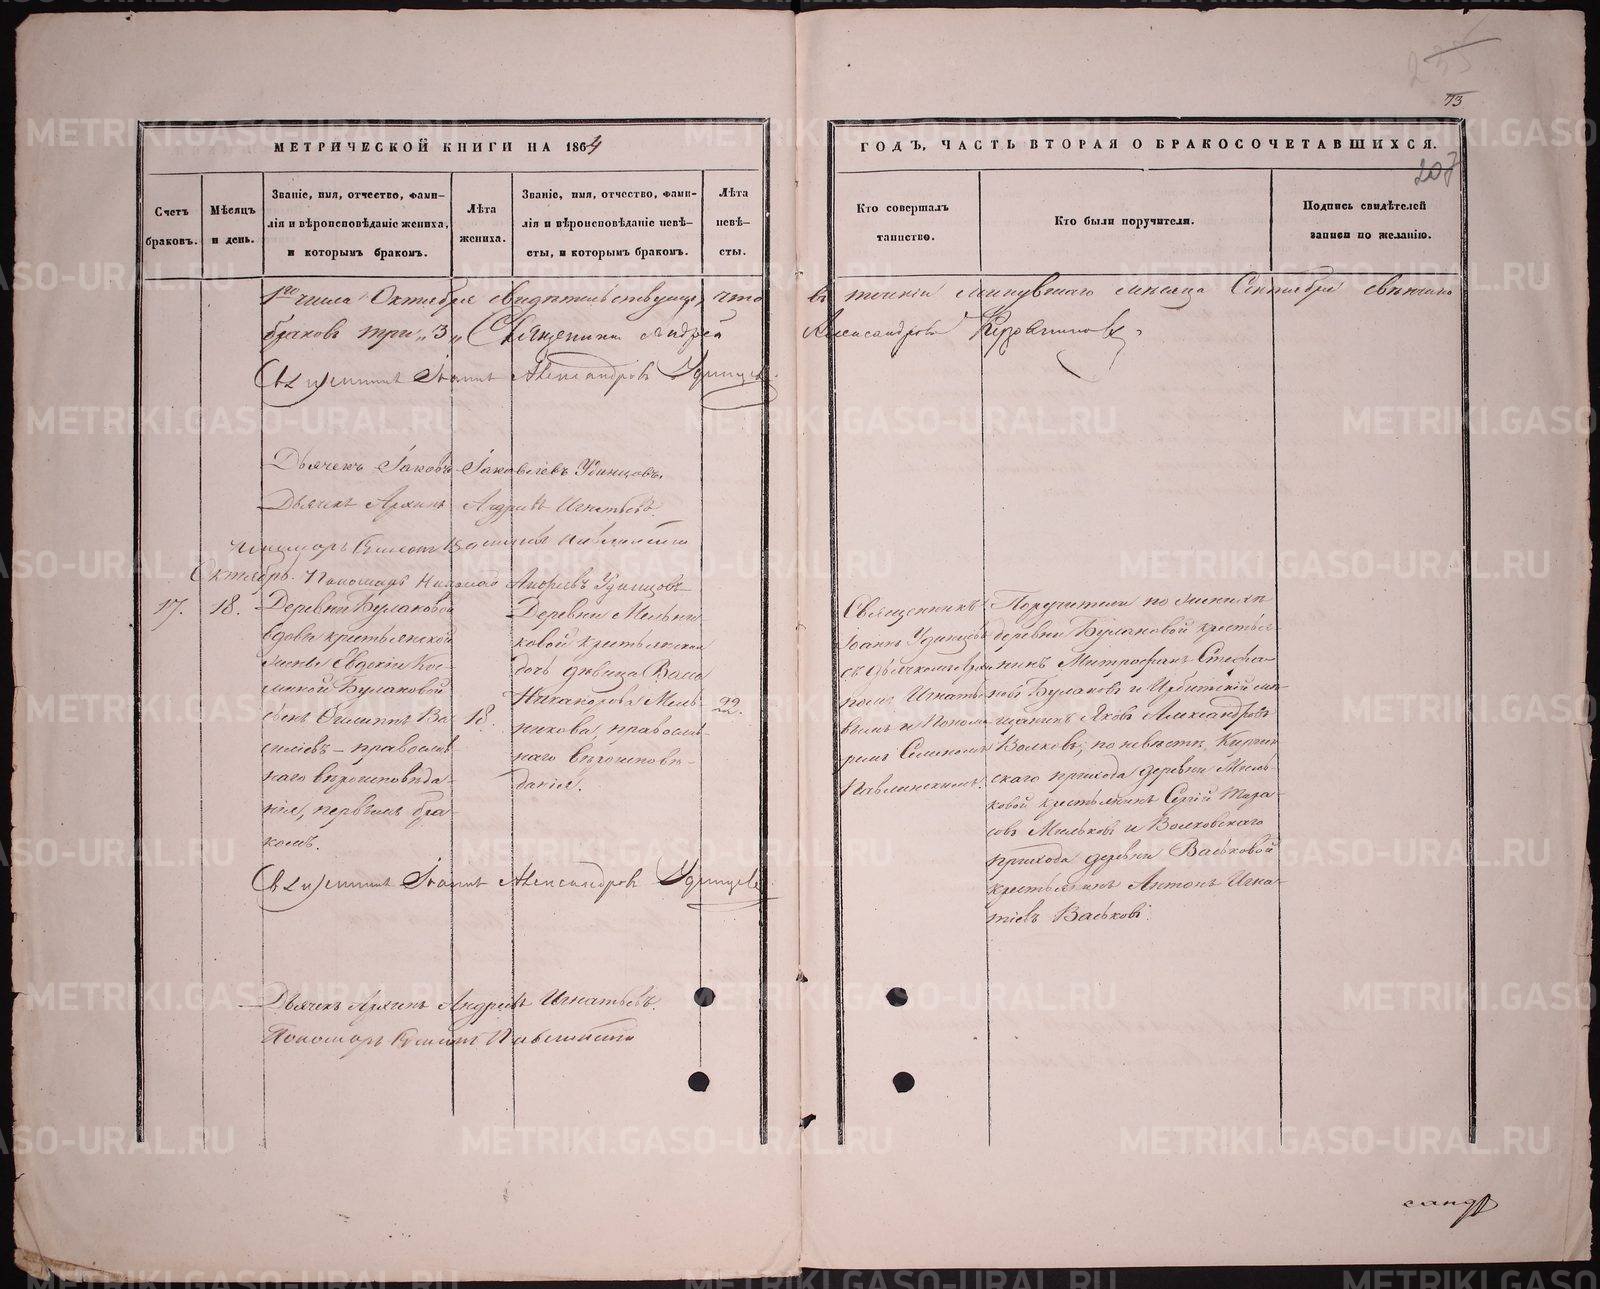 73
207
МЕТРИЧЕСКОЙ КНИГИ НА 1864
Счетъ браковъ.
Мѣсяцъ и день.
Званіе, имя, отчество, фами-
лія и вѣроисповѣданіе жениха,
и которымъ бракомъ.
Лѣта жениха.
Званіе, имя, отчество, фами-
лія и вѣроисповѣданіе невѣ-
сты, и которымъ бракомъ.
Лѣта невѣ-
сты.
ГОДЪ, ЧАСТЬ ВТОРАЯ О БРАКОСОЧЕТАВШИХСЯ.
Кто совершалъ
таинство.
Кто были поручители.
Подпись свидѣтелей
записи по желанію.
1го числа Октября свидѣтельствуемъ, что въ теченіи минувшаго мѣсяца Сентября
браковъ три „3„ Священникъ Андрей Александровъ
Священникъ Іоаннъ Александровъ Удинцевъ
Дьячекъ Іаковъ Іаковлевъ Удинцовъ.
Дьячекъ Архипъ Андреевъ Игнатьевъ.
Октябрь. Пономарь Николай Андреевъ Удинцовъ
17.
18.
Деревни Булаковой
вдовы крестьянской
жены Евдокіи Кос-
миной Булаковой
сынъ Филиппъ Ва-
силіевъ – православ
наго вѣроисповѣда-
нія, первымъ бра-
комъ.
18.
Деревни Мельни
ковой крестьянская
дочь дѣвица Васса
Никанорова Мель-
никова, православ-
наго вѣроисповѣ-
данія.
22.
Священникъ
Іоаннъ Удинцевъ
съ дьячкомъ Архи
помъ Игнать
вымъ и Понома
ремъ Семеномъ
Павлинскимъ.
Поручители по женихѣ
деревни Булановой крестья-
нинъ Митрофанъ Стефа-
новъ Булаковъ и Ирбитскій мѣ-
щанинъ Яковъ Александровъ
Волковъ; по невѣстѣ, Кирги
скаго прихода деревни Мель-
ковой крестьянинъ Сергій Тара-
совъ Мельковъ и Волковскаго
прихода деревни Васьковой
крестьянинъ Антонъ Игна-
тіевъ Васьковъ.
Священникъ Іоаннъ Александровъ Удинцевъ
Дьячекъ Архипъ Андреевъ Игнатьевъ.
METRIKI.GASO-URAL.RU